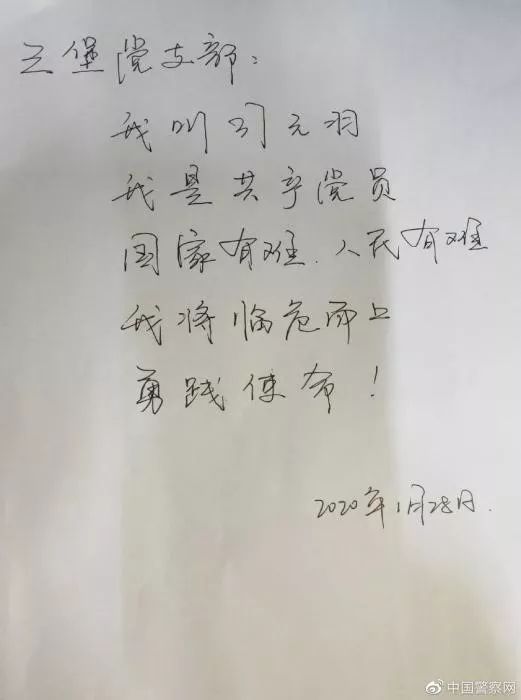 三堡党支部：
我叫刁元羽
我是共产党员
国家有难.人民有难
我将临危而上
勇践使命！
2020年1月28日.
@中国警察网